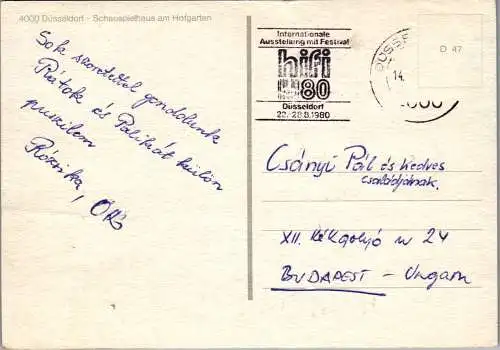 4000 Düsseldorf - Schauspielhaus am Hofgarten
Sok szeretettel gondolunk
Rátok és Palikát külön
puszilom
Rózsika, 
Internationale
Ausstellung mit Festival
hifi
80
Düsseldorf
22.-28.8.1980
14.
4000
D 47
Csányi Pál és kedves
családjának.
XII. Kékgolyó u 24
BUDAPEST - Ungarn